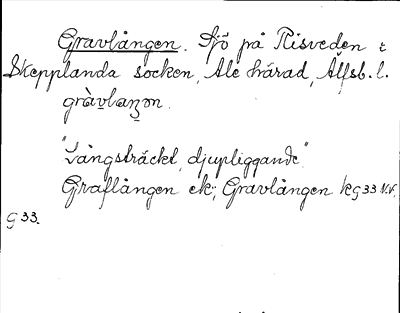 Gravlången. Sjö på Risveden i
Skepplanda socken, Ale härad, Älfsb. l.
gràvlaŋən.
"Långsträckt, djupliggande"
Graflången ek; Gravlången kG33 N.V.
G 33.